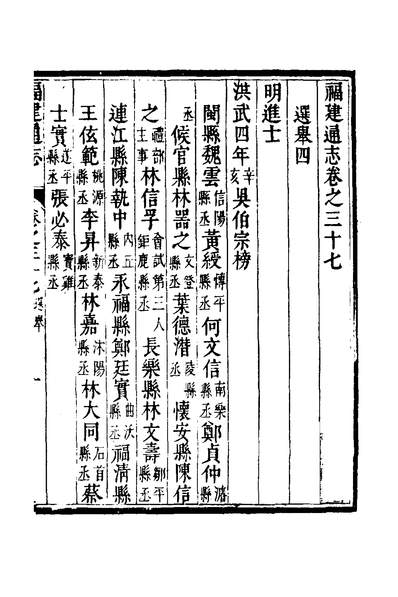 福建通志卷之三十七
選舉四
明進士
洪武四年辛亥吳伯宗榜
閩縣魏雲信陽縣丞黃綬博平縣丞何文信南樂縣丞鄭貞仲潞縣
丞候官縣林器之文登縣丞葉德潛陵縣丞懷安縣陳信
之禮部主事林信孚會試第三人鉅鹿縣丞長樂縣林文壽鄒平縣丞
連江縣陳執中內丘縣丞永福縣鄭廷實曲沃縣丞福清縣
王伭範桃源縣丞李昇新泰縣丞林嘉沭陽縣丞林大同石首縣丞蔡
士實遂平縣丞張必泰寶雞縣丞
福建通志 卷之三十七 選舉 一